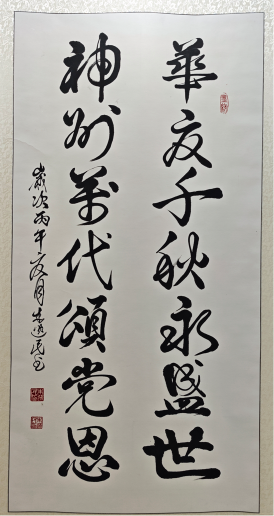 華夏千秋永盛世
神州萬代頌党恩
歲次丙午夏月